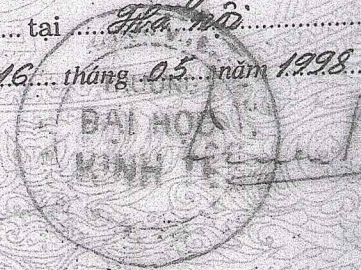 tại Hà nội
16 tháng 05 năm 1998
TRƯỜNG
ĐẠI HỌC
KINH TẾ